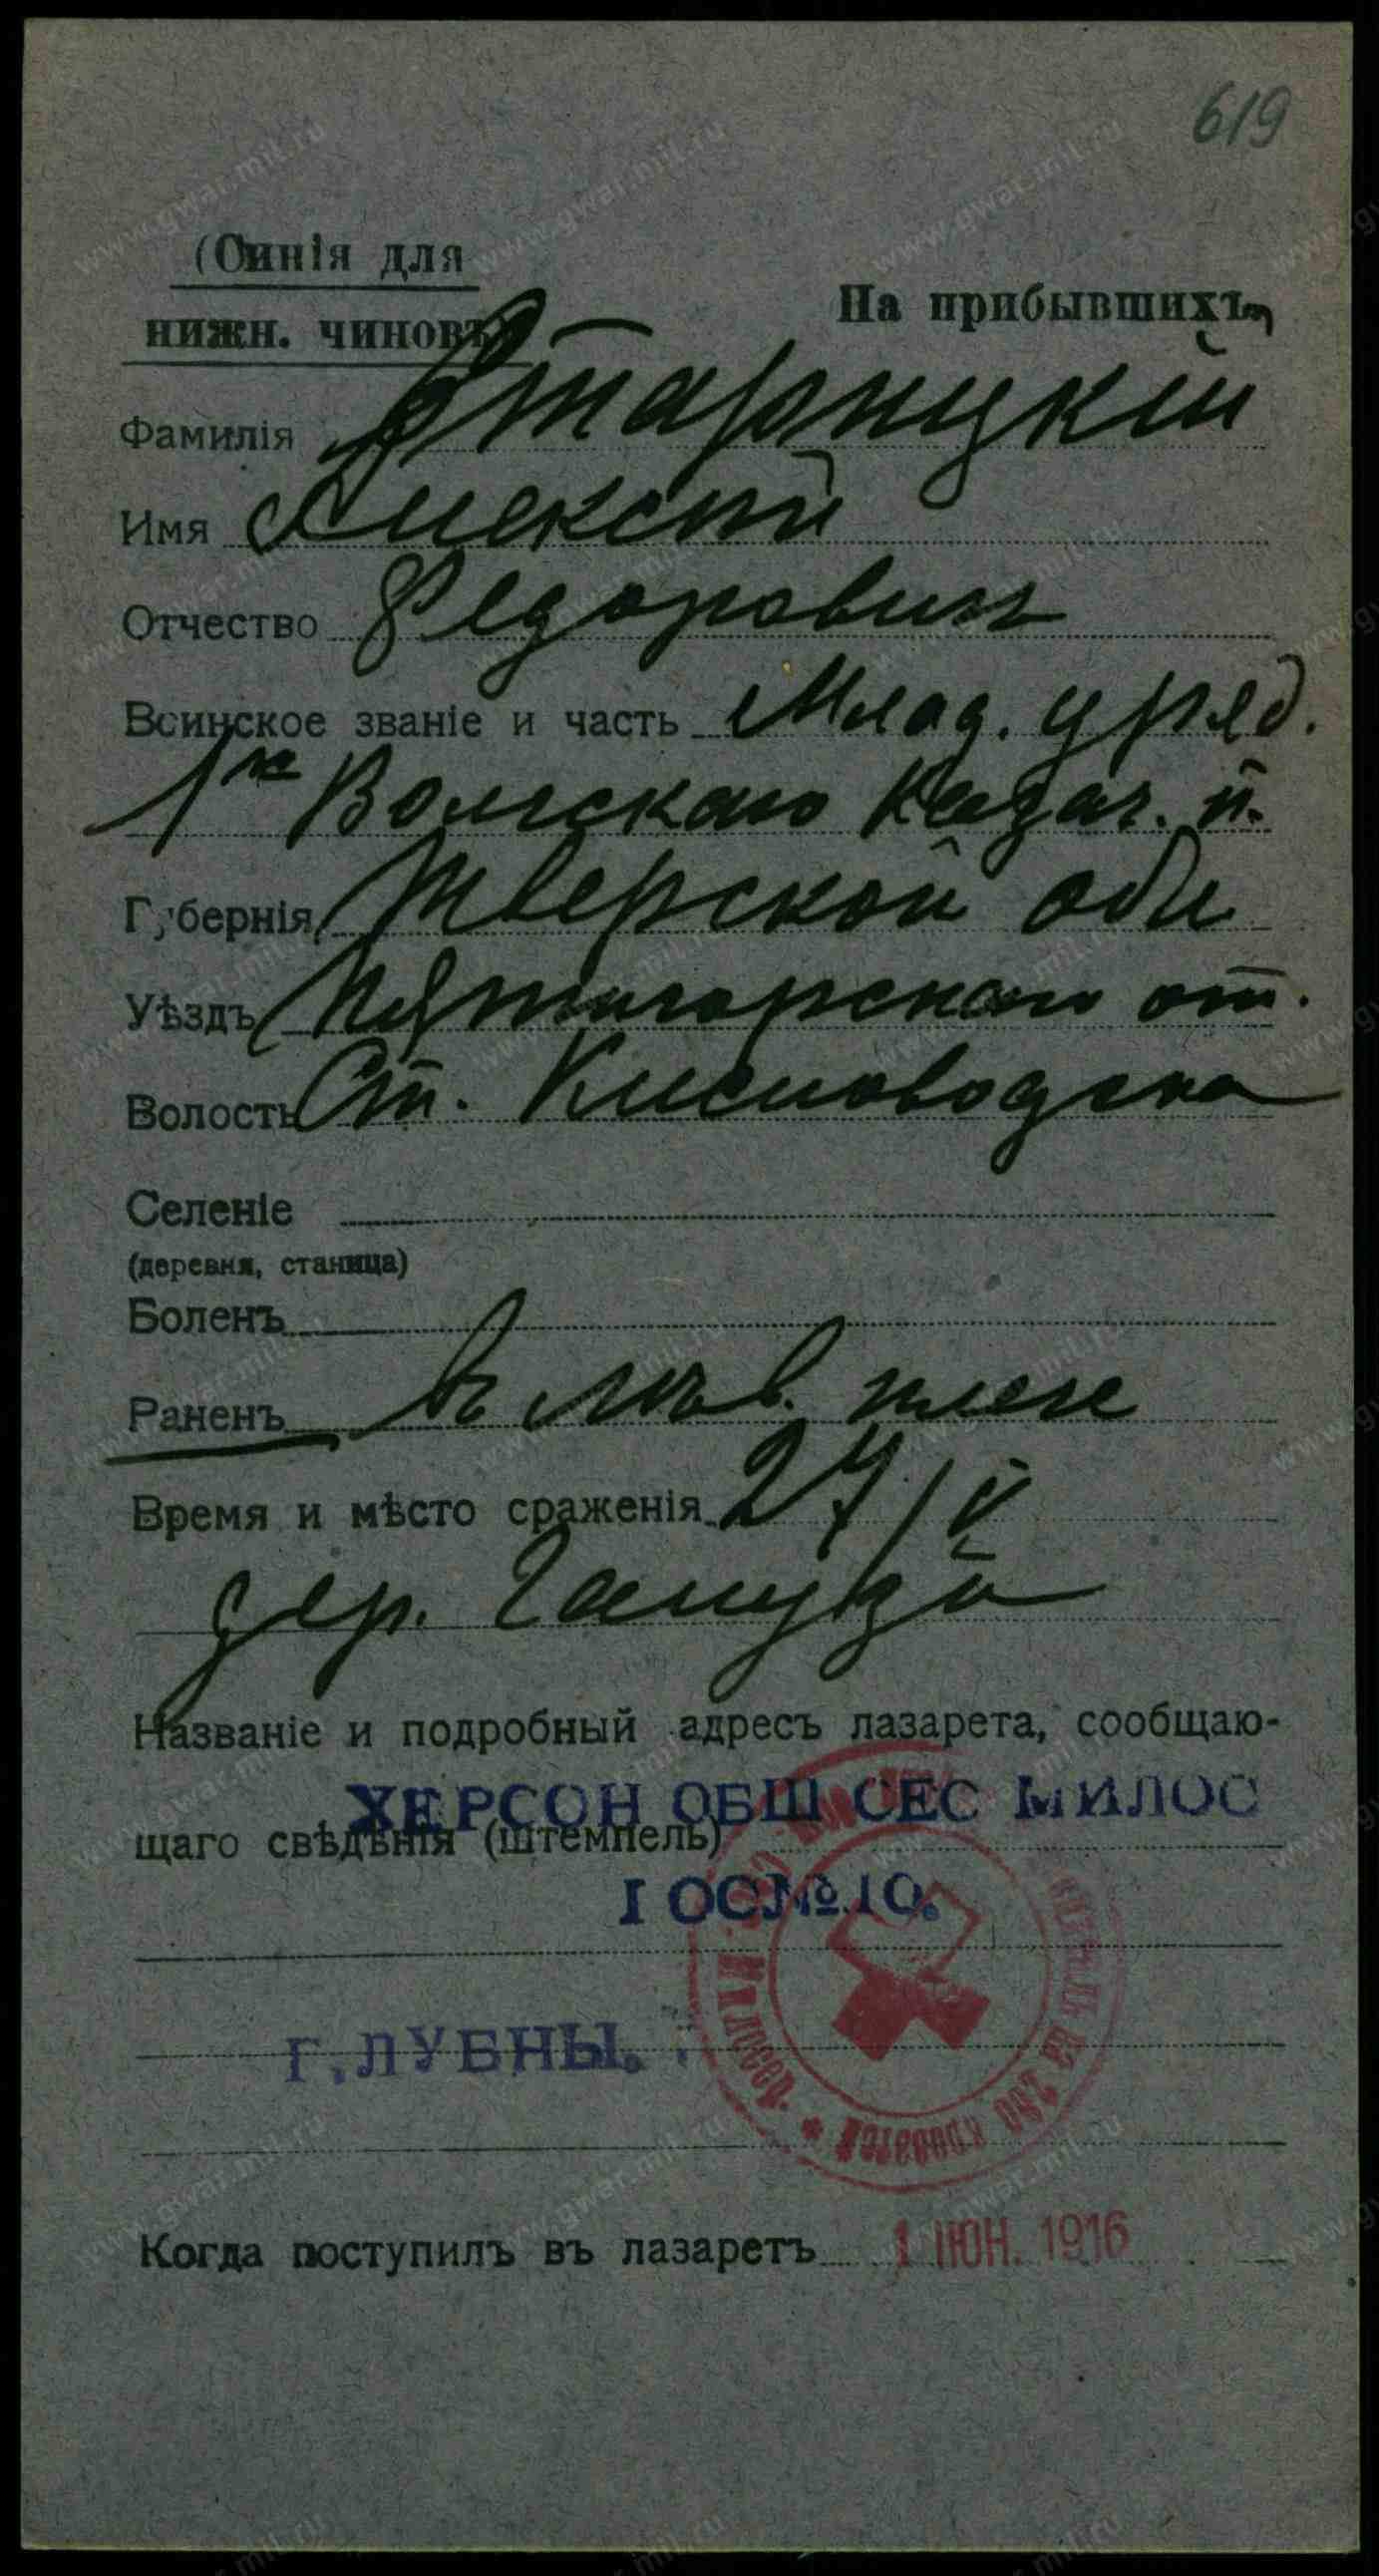 619
(Синія для
нижн. чиновъ)
На прибывшихъ
Фамилія Старицкій
Имя Алексѣй
Отчество Федоровичъ
Воинское званіе и часть Млад. уряд.
1го Волгскаго Казач. п.
Губернія Тверской обл
Уѣздъ Пятигорскаго от.
Волость Ст. Кисловодская
Селеніе
(деревня, станица)
Боленъ
Раненъ въ лѣв. плече
Время и мѣсто сраженія 27/V
дер.
Названіе и подробный адресъ лазарета, сообщаю-
ХЕРСОН ОБЩ СЕС МИЛОС
щаго свѣдѣнія (штемпель)
I ОС № 10.
Г. ЛУБНЫ.
на 250 кроватей
Когда поступилъ въ лазаретъ 1 ІЮН. 1916
www.gwar.mil.ru